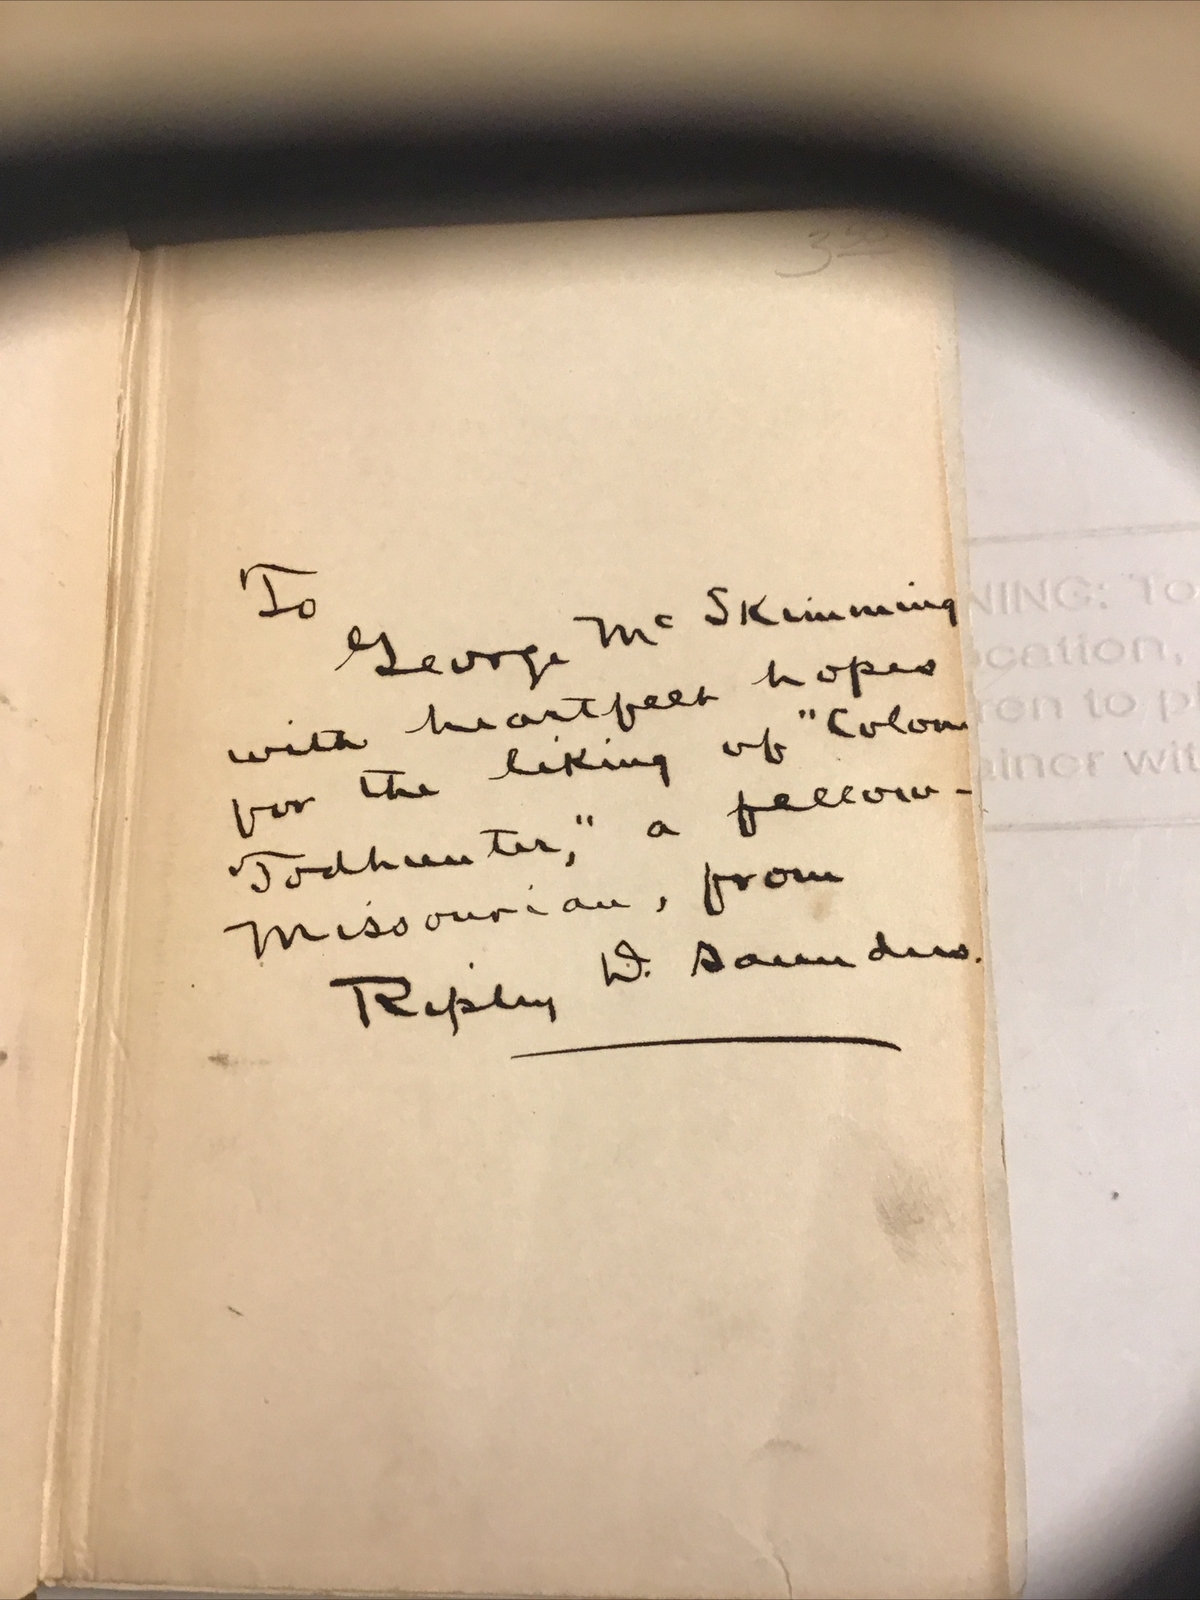 3 50
To
George Mc Skimming
with heartfelt hopes
for the liking of "Colon
Todhunter," a fellow-
Missourian, from
Ripley D. Saunders.
NING: To
ocation,
ren to pl
ainer wit